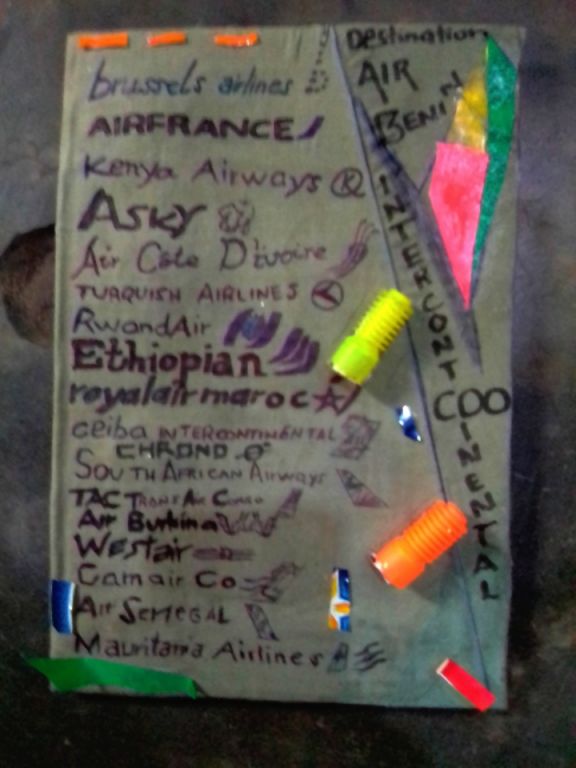 brussels airlines
AIRFRANCE
Kenya Airways K
ASKY
Air Côte D'ivoire
TURQUISH AIRLINES
RwandAir
Ethiopian
royalair maroc
ceiba INTERCONTINENTAL
CHRONO
SOUTH AFRICAN Airways
TAC TRANS Air CONGO
Air Burkina
Westair
Camair Co
Air SENEGAL
Mauritania Airlines
Destination
AIR
BENIN
INTERCONT
COO
INENTAL